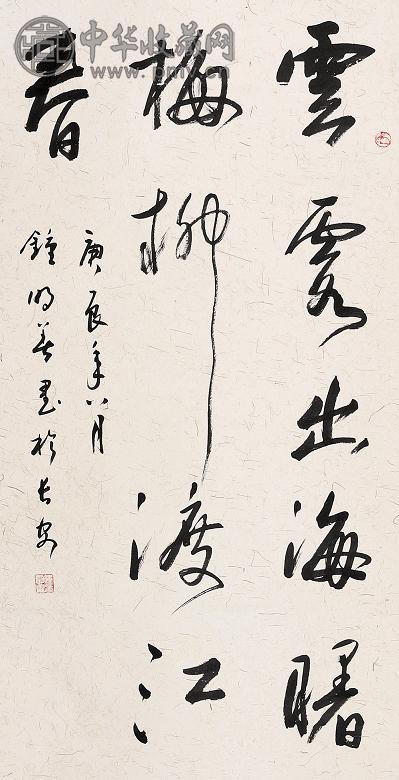 中华收藏网
雲霞出海曙
梅柳渡江
春
庚辰年八月
鍾明善書於長安